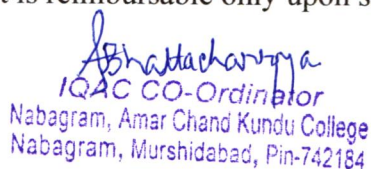 t is reimbursable only upon s
ABhattacharyya
IQAC CO-Ordinator
Nabagram, Amar Chand Kundu College
Nabagram, Murshidabad, Pin-742184